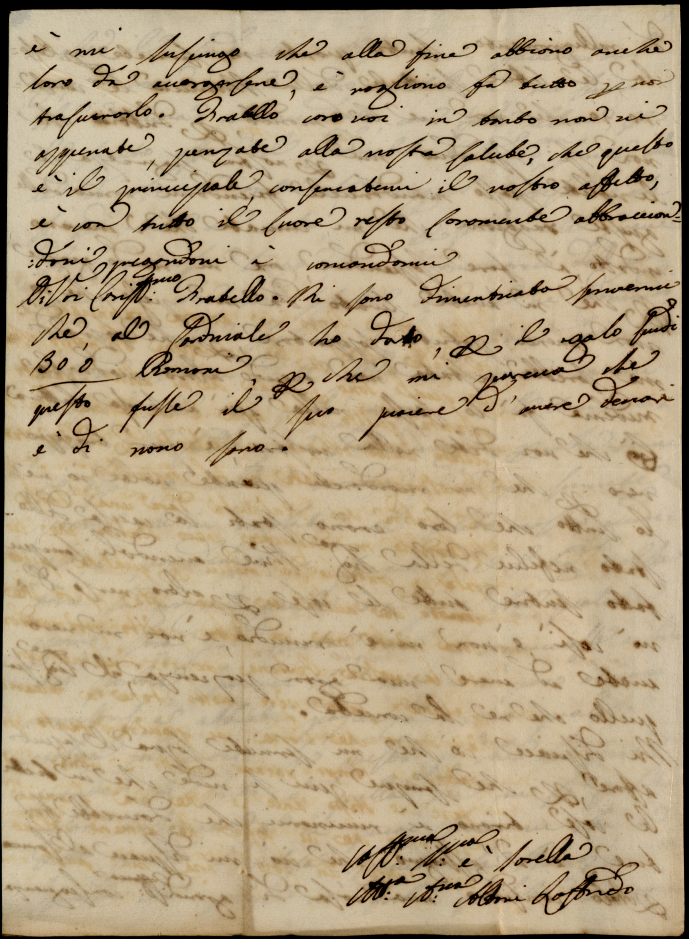 è mi lusingo che alla fine abbiono anche
loro da avergersene, è vogliono fa tutto p non
trascurarlo. Fratello caro voi in tanto non vi
appenate, penzate alla vostra salute, che questo
è il principale, conservatemi il vostro affetto,
è con tutto il cuore resto caramente abbraccian=
:dovi, pregandovi è comandarmi
Di Voi Cariss:mo Fratello. Mi sono dimenticata scrivervi
che, al Padniale ho dato, p il regalo
30 0 Romani, p che mi pareva che
questo fusse il suo piacere d'avere denari
è di novo sono.
Aff:ma S:ra è Sorella
M:a A:na Altoni Loffredo